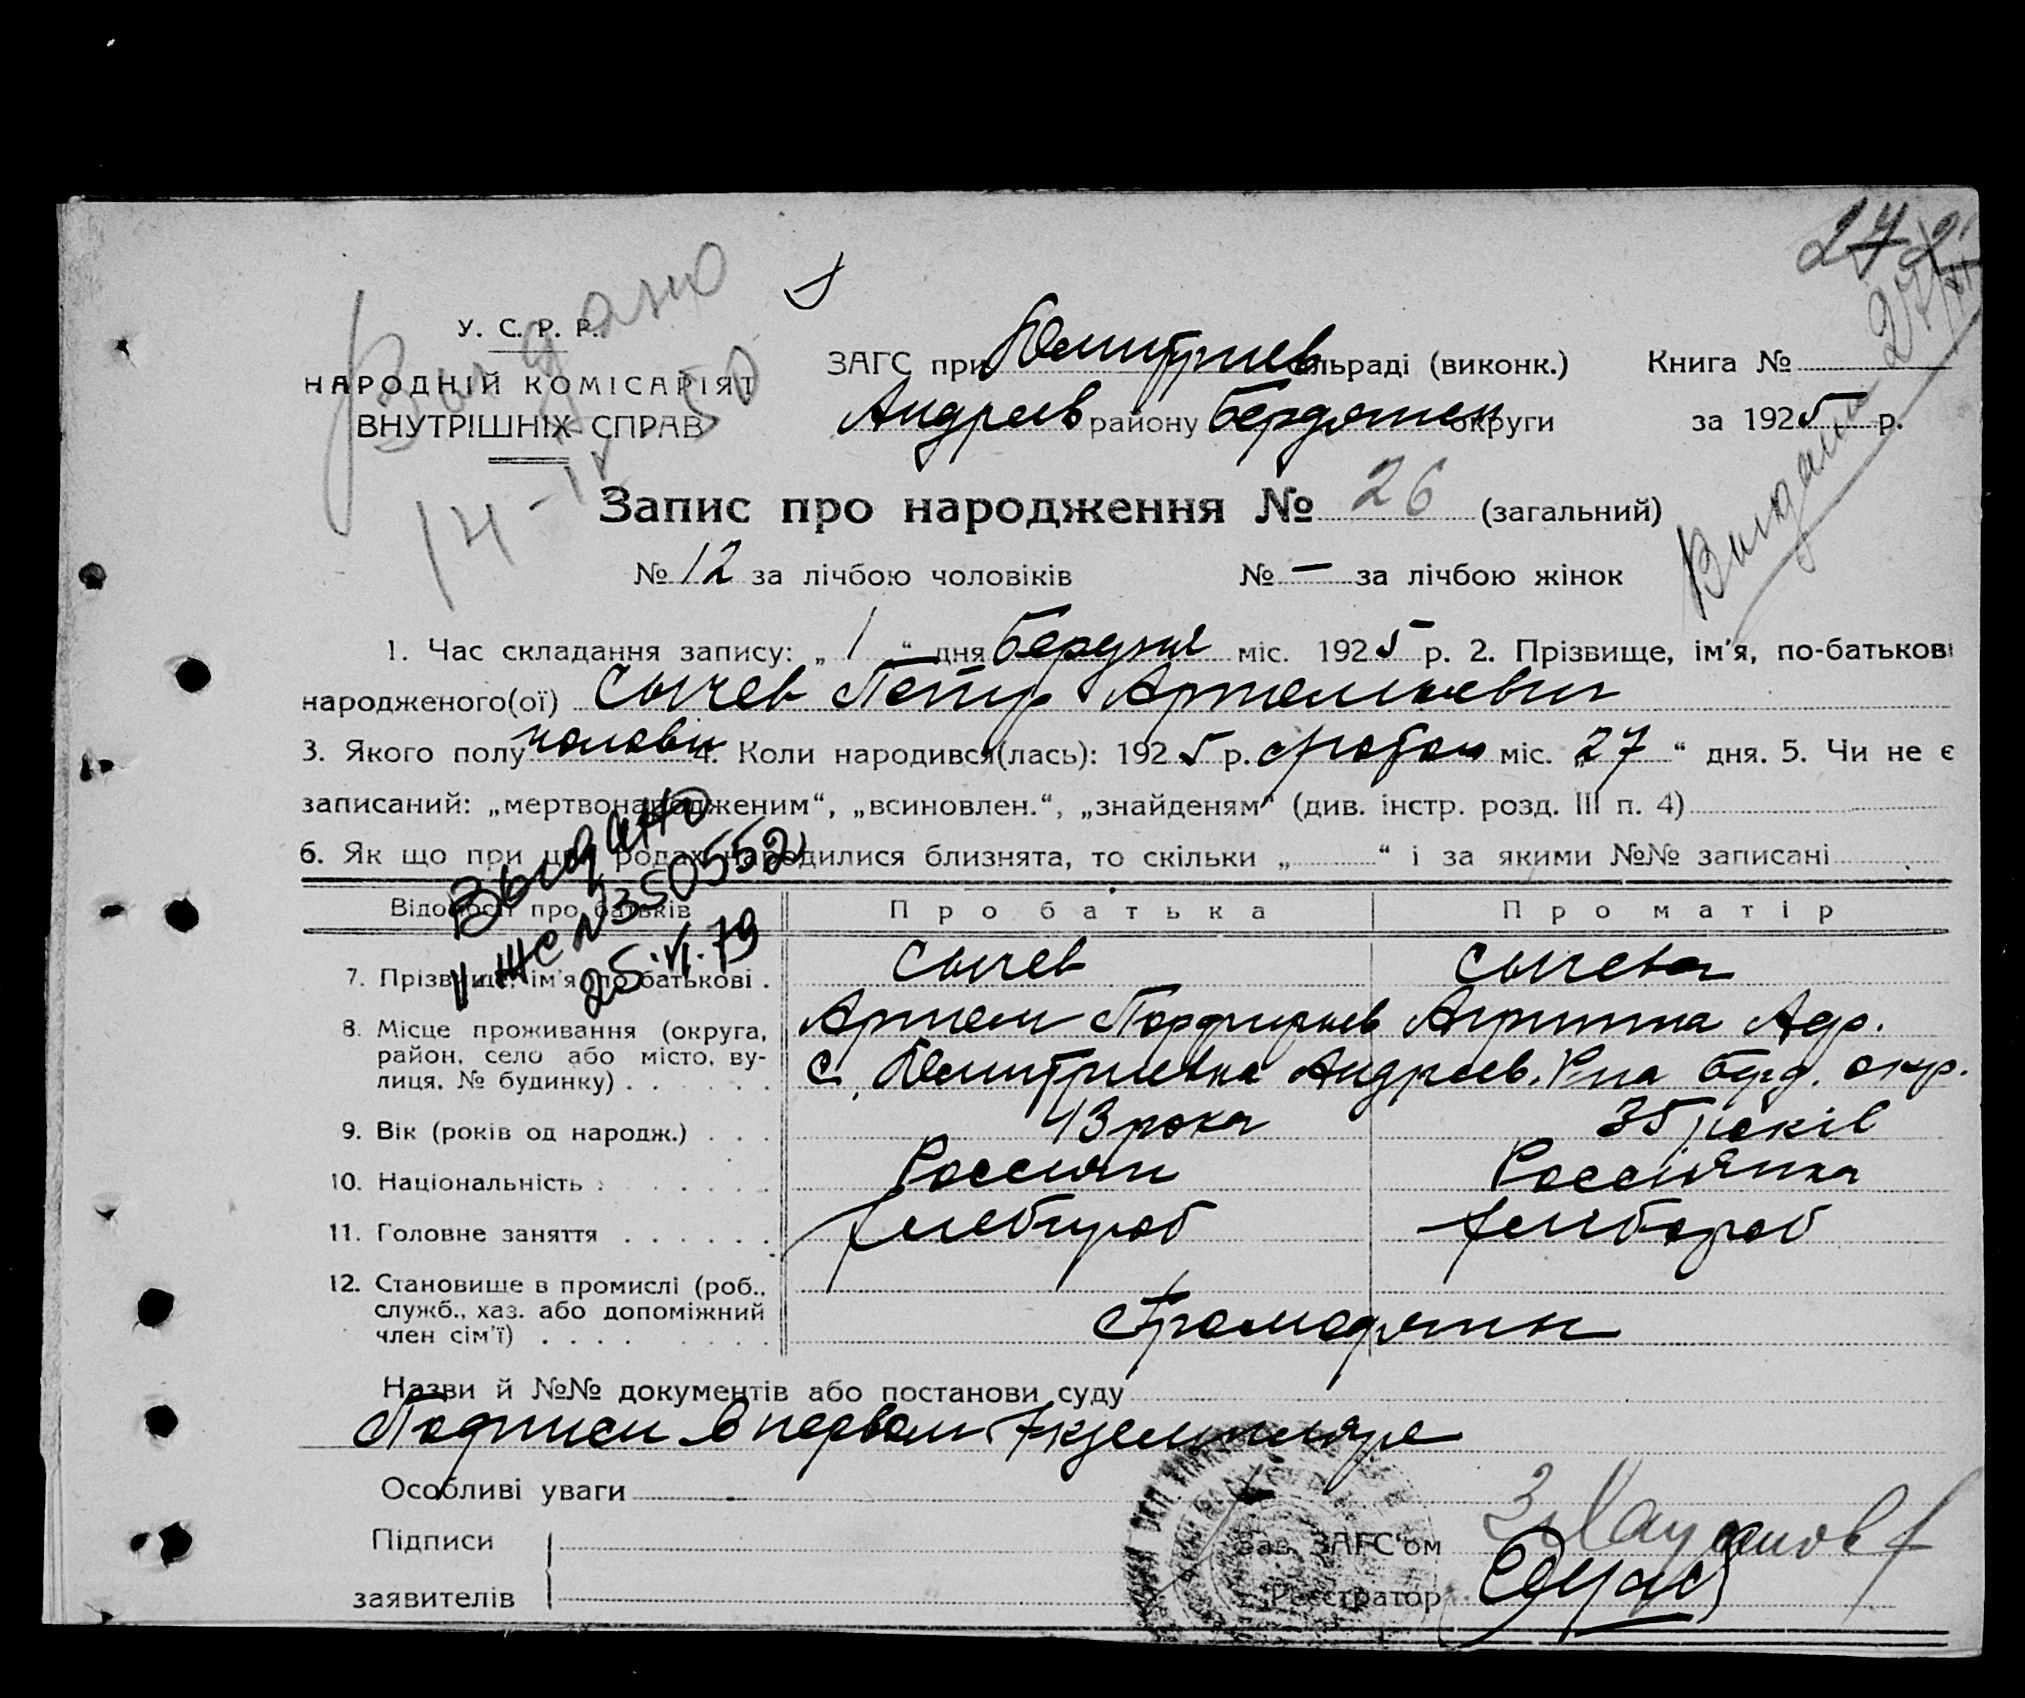 У. С. Р. Р.
НАРОДНІЙ КОМІСАРІЯТ
ВНУТРІШНІХ СПРАВ
Выдано
14-IV 50
ЗАГС при Дмитриев сільраді (виконк.)
Андреев району Бердянск округи
Книга №
за 1925 р.
274
Выдано
Запис про народження № 26 (загальний)
№ 12 за лічбою чоловіків № — за лічбою жінок
1. Час складання запису: „ 1 “ дня березня міс. 1925 р. 2. Прізвище, ім’я, по-батькові
народженого(ої) Сычев Петр Артемиевич
3. Якого полу чоловіч 4. Коли народився(лась): 1925 р. лютого міс. „27“ дня. 5. Чи не є
записаний: „мертвонародженим“, „всиновлен.“, „знайденям“ (див. інстр. розд. III п. 4)
6. Як що при цих родах народилися близнята, то скільки „ “ і за якими №№ записані
Выдано
V-ЖС №350552
25.VI.79
Відомості про батьків Про батька Про матір
7. Прізвище, ім’я, по-батькові . Сычев Сычева
Артем Порфирьев Агрипина Адр.
8. Місце проживання (округа,
район, село або місто, ву-
лиця, № будинку) . . . . . . с. Дмитриевка Андреев. Р-на Берд. окр.
9. Вік (років од народж.) . . . 43 рока 35 років
10. Національність : . . . . . Россиян Россіянка
11. Головне заняття . . . . . . хлебороб хлібороб
12. Становище в промислі (роб.,
служб., хаз. або допоміжний
член сім’ї) . . . . Громадянин
Назви й №№ документів або постанови суду
Подписи в первом экземпляре
Особливі уваги
Підписи
заявителів
Зав. ЗАГС’ом
Реєстратор